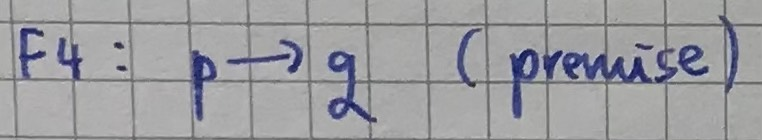 F4: p → q (premise)